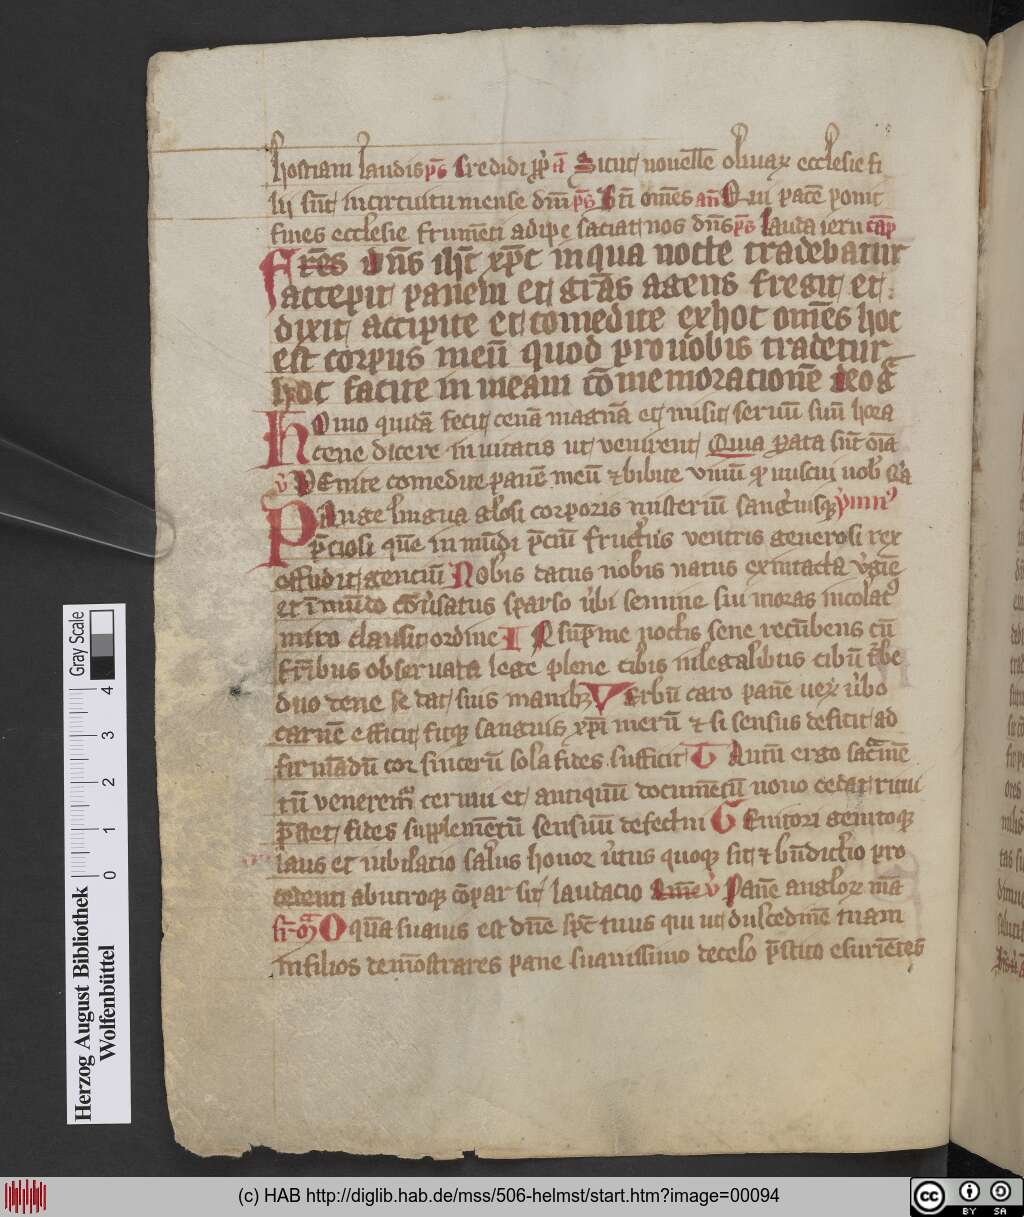 hostiam laudis ps̄ Credidi xp̄ a Sicut nouelle oliuaꝝ ecclesie fi
lii sūt in circuitu mense dn̄i ps̄ Bti omēs an̄ Qui pacē ponit
fines ecclesie frumēti adipe saciat nos dn̄s ps̄ Lauda ieru cap̄
Frēs dn̄s ih̄c xp̄c in qua nocte tradebatur
accepit panem et grās agens fregit et
dixit accipite et comedite ex hoc omēs hoc
est corpus meū quod pro uobis tradetur
hoc facite in meam cōmemoracionē Deo g
Homo quidā fecit cenā magnā et misit seruū suū hora
cene dicere inuitatis ut uenirent Quia parata sūt oīa
v̉ Venite comedite panē meū ⁊ bibite vinū qd̄ miscui uob̉ Qia
Pange lingua glosi corporis misteriū sanguisqꝫ ym̄n9
p̄ciosi quē in mūdi p̄ciū fructus ventris generosi rex
effudit genciū Nobis datus nobis natus ex intacta v̉gīe
et ī mundo cōủsatus sparso ủbi semine sui moras incolat9
miro clausit ordine In sup̄me noctis cene recūbens cū
fr̄ibus obseruata lege plene cibis in legalibus cibū t̉be
duo dene se dat suis manibꝫ Verbū caro panē ueꝝ ủbo
carnē efficit fitqꝫ sanguis xp̄i merū ⁊ si sensus deficit ad
firmādū cor sincerū sola fides sufficit Tantū ergo sacm̄ē
tū venerem̉ cernui et antiquū documētū nouo cedat ritui
p̄stet fides supplemētū sensuū defectui Genitori genitoqꝫ
laus et iubilacio salus honor ủtus quoqꝫ sit ⁊ bn̄dictio pro
cedenti ab utroqꝫ cōpar sit laudacio Amē v̉ Panē angloꝝ mā
O quā suauis est dn̄e spc̄ tuus qui ut dulcedinē tuam
in filios demōstrares pane suauissimo de celo p̄stito esuriētes
Gray Scale
0 1 2 3 4
Herzog August Bibliothek
Wolfenbüttel
(c) HAB http://diglib.hab.de/mss/506-helmst/start.htm?image=00094
cc BY SA